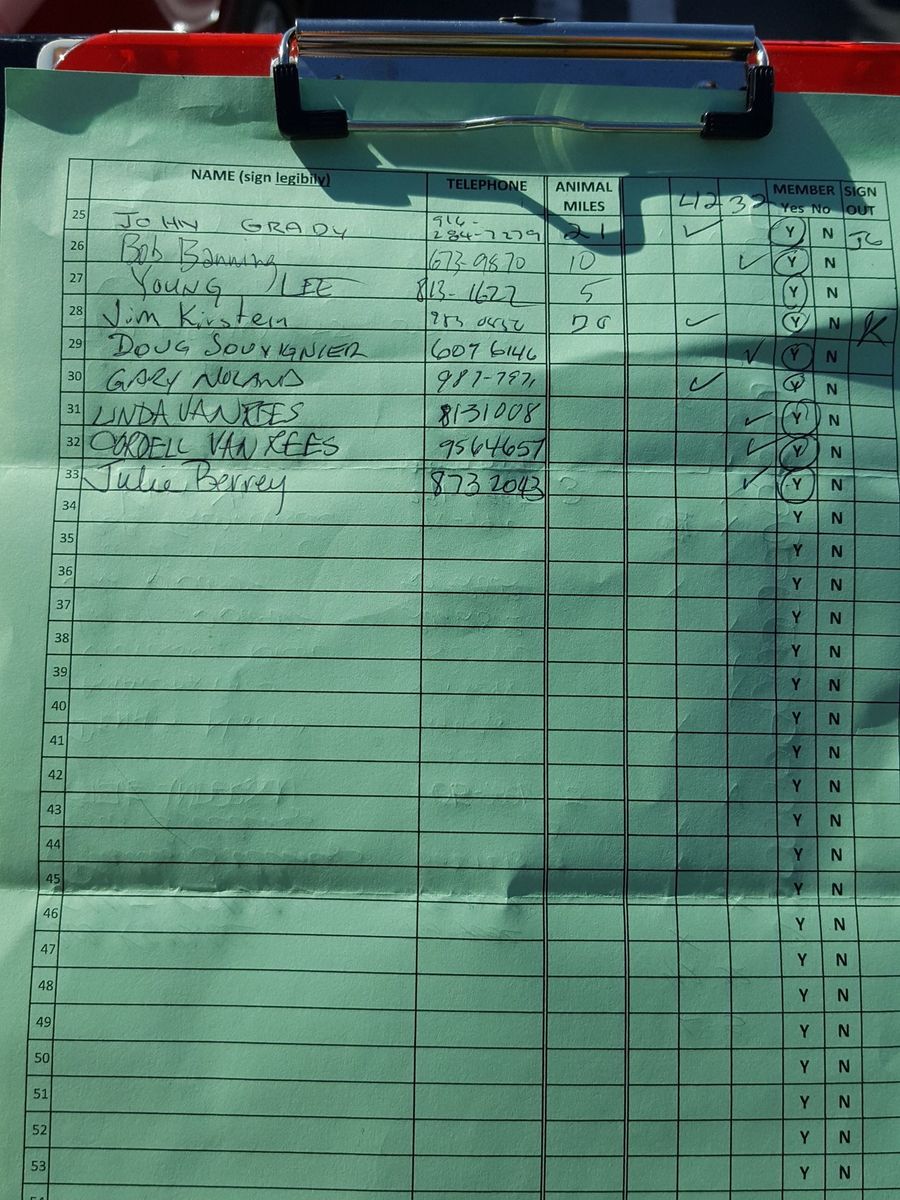 NAME (sign legibily) TELEPHONE ANIMAL MILES 42 32 MEMBER Yes No SIGN OUT
25 JOHN GRADY 916-284-7279 21 ✓ Y N JG
26 Bob Banning 673-9870 10 ✓ Y N
27 YOUNG LEE 813-1622 5 Y N
28 Jim Kirstein ✓ Y N K
29 DOUG SOUVIGNIER 607 6146 ✓ Y N
30 GARY NOLAND ✓ Y N
31 LINDA VAN REES 8131008 ✓ Y N
32 CORDELL VAN REES 9564657 ✓ Y N
33 Julie Berrey 873 2043 ✓ Y N
34 Y N
35 Y N
36 Y N
37 Y N
38 Y N
39 Y N
40 Y N
41 Y N
42 Y N
43 Y N
44 Y N
45 Y N
46 Y N
47 Y N
48 Y N
49 Y N
50 Y N
51 Y N
52 Y N
53 Y N